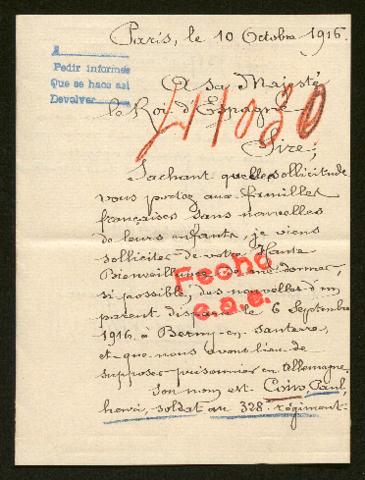 Paris, le 10 Octobre 1916.
A
Pedir informes
Que se haos asi
Devolver
A sa Majesté
le Roi d'Espagne
41080
Sire,
Sachant quelle sollicitude
vous portez aux familles
françaises sans nouvelles
de leurs enfants, je viens
solliciter de votre Haute
Bienveillance de me donner,
si possible, des nouvelles d'un
parent disparu le 6 Septembre
1916 à Berny-en-Santerre,
et que nous avons lieu de
supposer prisonnier en Allemagne.
Fecha
c.a.e.
Son nom est Paul,
henri, soldat au 328. régiment